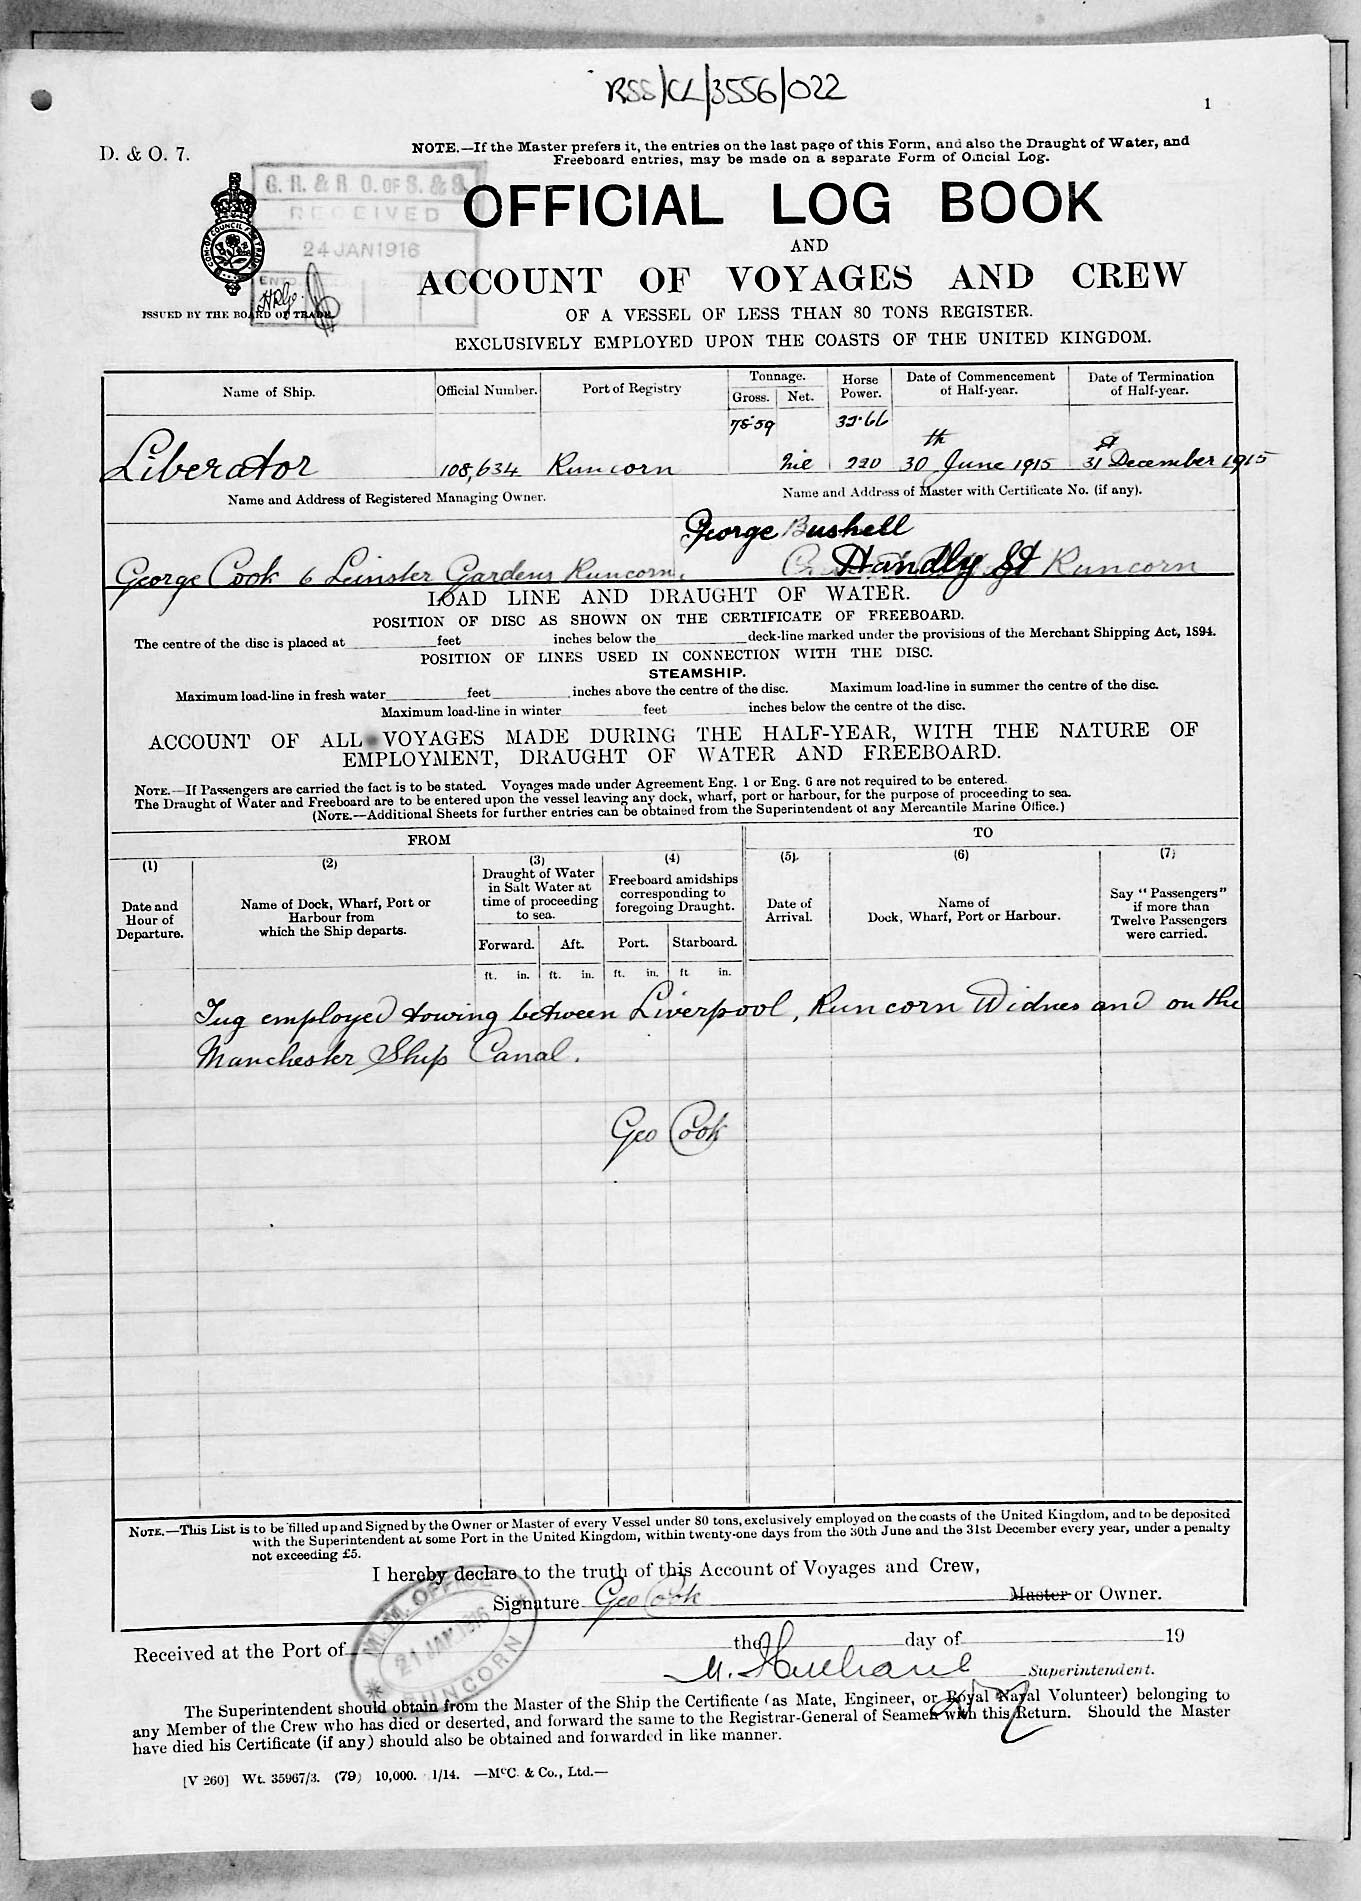 RSS/CL/3556/022
1
D. & O. 7.
NOTE.—If the Master prefers it, the entries on the last page of this Form, and also the Draught of Water, and
Freeboard entries, may be made on a separate Form of Official Log.
G. R. & R. O. OF S. & S.
RECEIVED
24 JAN 1916
OFFICIAL LOG BOOK
AND
ACCOUNT OF VOYAGES AND CREW
ISSUED BY THE BOARD OF TRADE.
OF A VESSEL OF LESS THAN 80 TONS REGISTER.
EXCLUSIVELY EMPLOYED UPON THE COASTS OF THE UNITED KINGDOM.
Name of Ship. Official Number. Port of Registry Tonnage. Gross. Net. Horse Power. Date of Commencement of Half-year. Date of Termination of Half-year.
78·59 32·66
Liberator 108,634 Runcorn Nil 220 30th June 1915 31st December 1915
Name and Address of Registered Managing Owner. Name and Address of Master with Certificate No. (if any).
George Bushell
George Cook 6 Leinster Gardens Runcorn. Handly St Runcorn
LOAD LINE AND DRAUGHT OF WATER.
POSITION OF DISC AS SHOWN ON THE CERTIFICATE OF FREEBOARD.
The centre of the disc is placed at feet inches below the deck-line marked under the provisions of the Merchant Shipping Act, 1894.
POSITION OF LINES USED IN CONNECTION WITH THE DISC.
STEAMSHIP.
Maximum load-line in fresh water feet inches above the centre of the disc. Maximum load-line in summer the centre of the disc.
Maximum load-line in winter feet inches below the centre of the disc.
ACCOUNT OF ALL VOYAGES MADE DURING THE HALF-YEAR, WITH THE NATURE OF
EMPLOYMENT, DRAUGHT OF WATER AND FREEBOARD.
NOTE.—If Passengers are carried the fact is to be stated. Voyages made under Agreement Eng. 1 or Eng. 6 are not required to be entered.
The Draught of Water and Freeboard are to be entered upon the vessel leaving any dock, wharf, port or harbour, for the purpose of proceeding to sea.
(NOTE.—Additional Sheets for further entries can be obtained from the Superintendent of any Mercantile Marine Office.)
FROM TO
(1) (2) (3) (4) (5). (6) (7)
Date and Hour of Departure.
Name of Dock, Wharf, Port or Harbour from which the Ship departs.
Draught of Water in Salt Water at time of proceeding to sea.
Freeboard amidships corresponding to foregoing Draught.
Date of Arrival.
Name of Dock, Wharf, Port or Harbour.
Say "Passengers" if more than Twelve Passengers were carried.
Forward. Aft. Port. Starboard.
ft. in. ft. in. ft. in. ft in.
Tug employed towing between Liverpool, Runcorn Widnes and on the
Manchester Ship Canal.
Geo Cook
NOTE.—This List is to be filled up and Signed by the Owner or Master of every Vessel under 80 tons, exclusively employed on the coasts of the United Kingdom, and to be deposited
with the Superintendent at some Port in the United Kingdom, within twenty-one days from the 30th June and the 31st December every year, under a penalty
not exceeding £5.
I hereby declare to the truth of this Account of Voyages and Crew,
Signature Geo Cook Master or Owner.
M.M. OFFICE
21 JAN 1916
RUNCORN
Received at the Port of the day of 19
Superintendent.
The Superintendent should obtain from the Master of the Ship the Certificate (as Mate, Engineer, or Royal Naval Volunteer) belonging to
any Member of the Crew who has died or deserted, and forward the same to the Registrar-General of Seamen with this Return. Should the Master
have died his Certificate (if any) should also be obtained and forwarded in like manner.
[V 260] Wt. 35967/3. (79) 10,000. 1/14. —McC. & Co., Ltd.—